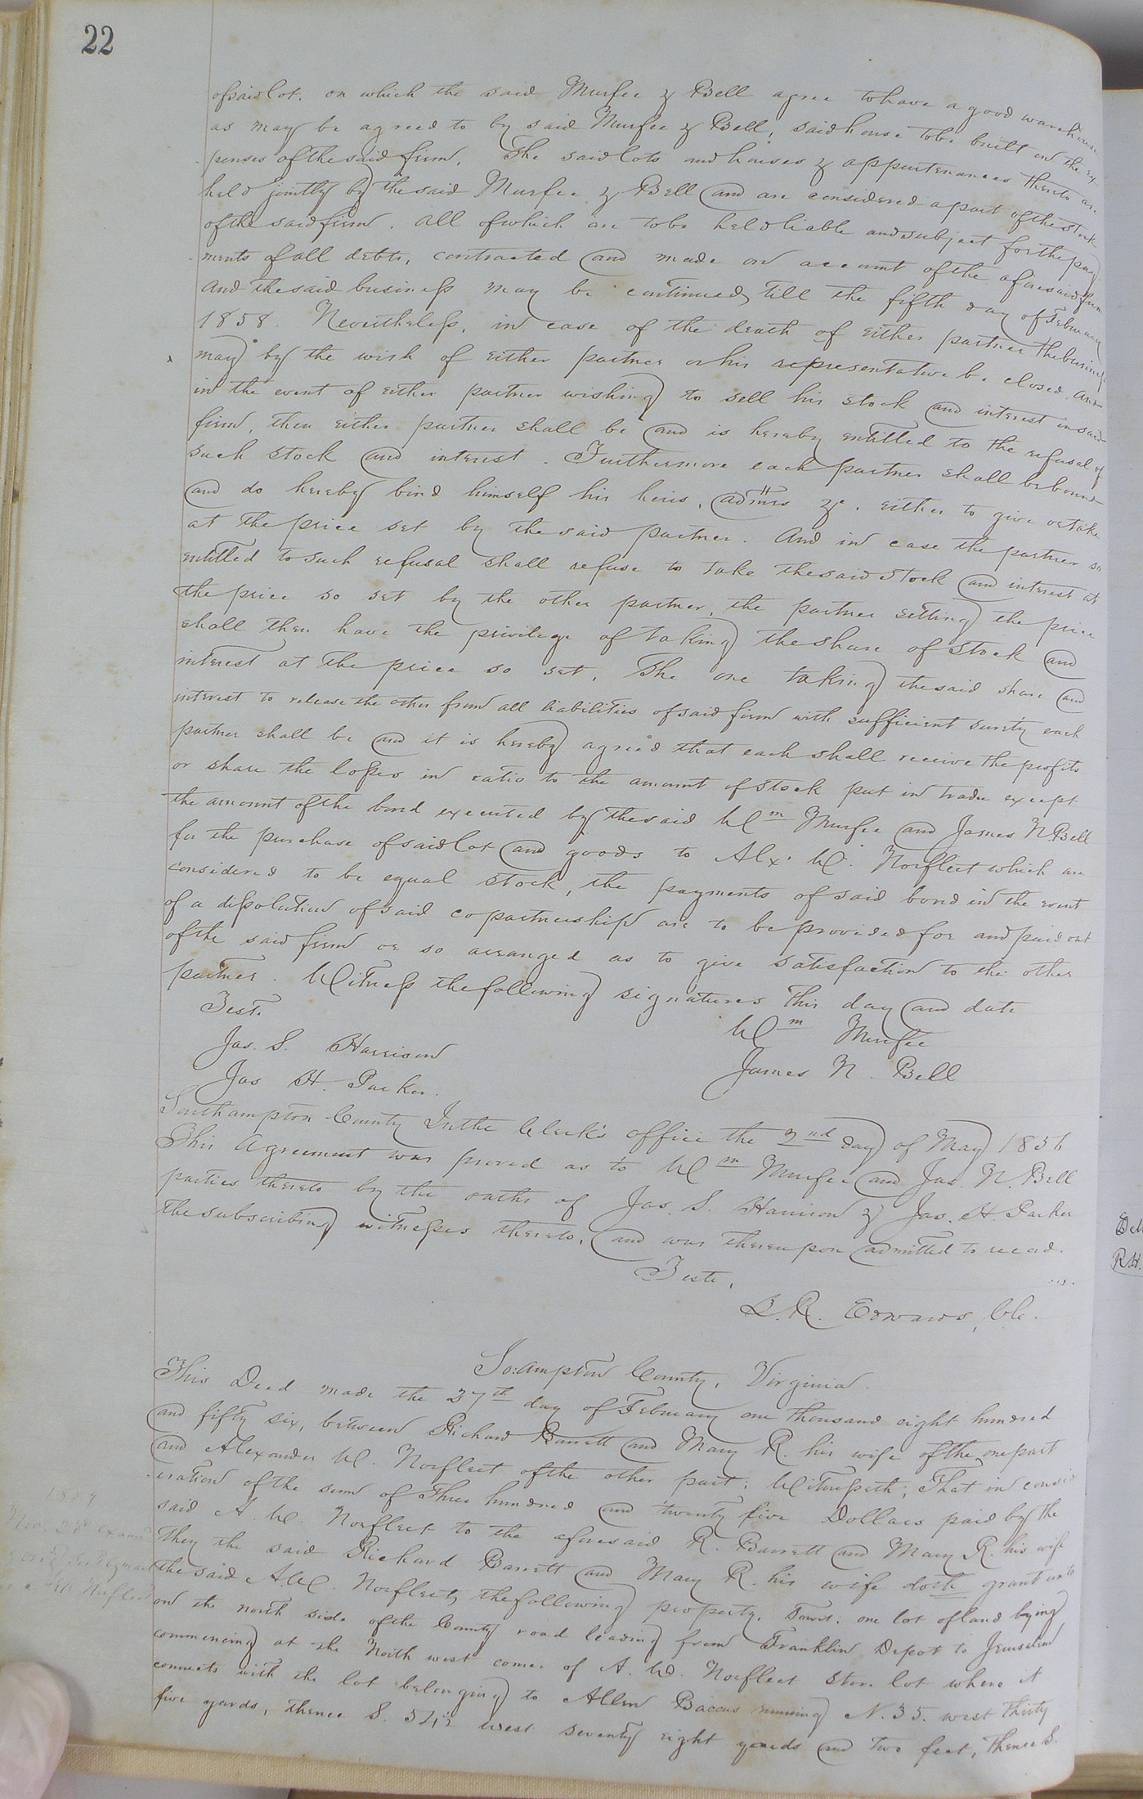 22
of said lot. on which the said Murfee & Bell agree to have a good warehouse
as may be agreed to by said Murfee & Bell, said house to be built on the ex-
penses of the said firm. The said lots and houses & appurtenances thereto are
held jointly by the said Murfee & Bell and are considered a part of the stock
of the said firm. all of which are to be held liable and subject for the pay
ments of all debts, contracted and made on account of the aforesaid firm
and the said business may be continued till the fifth day of February
1858. Nevertheless, in case of the death of either partner the business
may by the wish of either partner or his representative be closed. And
in the event of either partner wishing to sell his stock and interest in said
firm, then either partner shall be and is hereby entitled to the refusal of
such stock and interest. Furthermore each partner shall be bound
and do hereby bind himself his heirs, admrs &c. either to give or take
at the price set by the said partner. And in case the partner so
entitled to such refusal shall refuse to take the said stock and interest at
the price so set by the other partner, the partner setting the price
shall then have the privilege of taking the share of stock and
interest at the price so set. The one taking the said share and
interest to release the other from all liabilities of said firm with sufficient surety each
partner shall be and it is hereby agreed that each shall receive the profits
or share the losses in ratio to the amount of stock put in trade except
the amount of the bond executed by the said Wm Murfee and James N Bell
for the purchase of said lot and goods to Alx. W. Norfleet which are
considered to be equal stock, the payments of said bond in the event
of a dissolution of said copartnership are to be provided for and paid out
of the said firm or so arranged as to give satisfaction to the other
partner. Witness the following signatures this day and date
Test. Wm Murfee
Jas. S. Harrison James N. Bell
Jas H. Parker.
Southampton County In the Clerk's office the 2nd day of May 1856
This Agreement was proved as to Wm Murfee and Jas. N. Bell
parties thereto by the oaths of Jas. S. Harrison & Jas. H. Parker
the subscribing witnesses thereto, and was thereupon admitted to record.
Teste,
L. R. Edwards, Clc.
So:ampton County, Virginia
This Deed made the 27th day of February one thousand eight hundred
and fifty six, between Richard Barrett and Mary R. his wife of the one part
and Alexander W. Norfleet of the other part: Witnesseth; That in consid
eration of the sum of Three hundred and twenty five Dollars paid by the
said A. W. Norfleet to the aforesaid R. Barrett and Mary R. his wife
they the said Richard Barrett and Mary R. his wife doth grant unto
the said A.W. Norfleet, the following property. Towit: one lot of land lying
on the north side of the County road leading from Franklin Depot to Jerusalem
commencing at the North west corner of A. W. Norfleet store lot where it
connects with the lot belonging to Allen Baccus running N. 35. west thirty
five yards, thence S. 54½ west seventy eight yards and two feet, thence S.